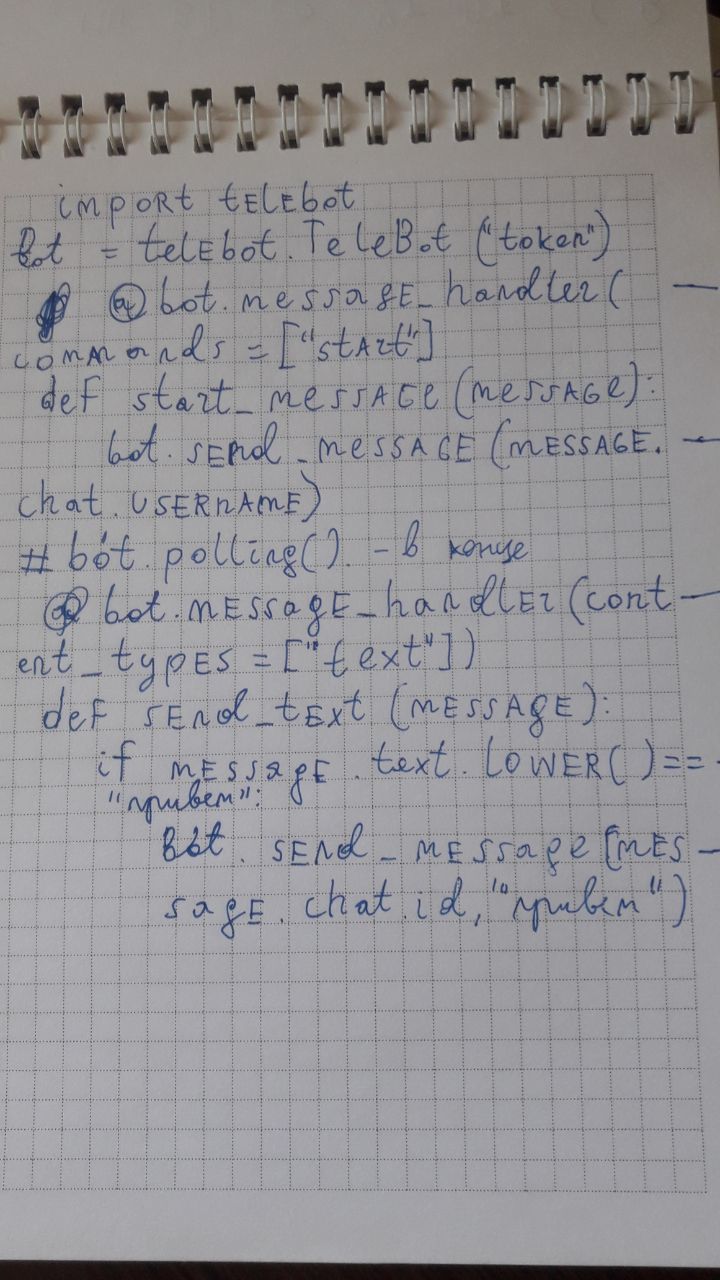 import telebot
bot = telebot.TeleBot ("token")
@ bot.message_handler( —
commands = ["start"]
def start_message (message):
bot.send_message (message. —
chat.username)
# bot.polling() - в конце
@ bot.message_handler (cont —
ent_types = ["text"])
def send_text (message):
if message.text.lower() == -
"привет":
bot.send_message (mes —
sage.chat.id, "привет")